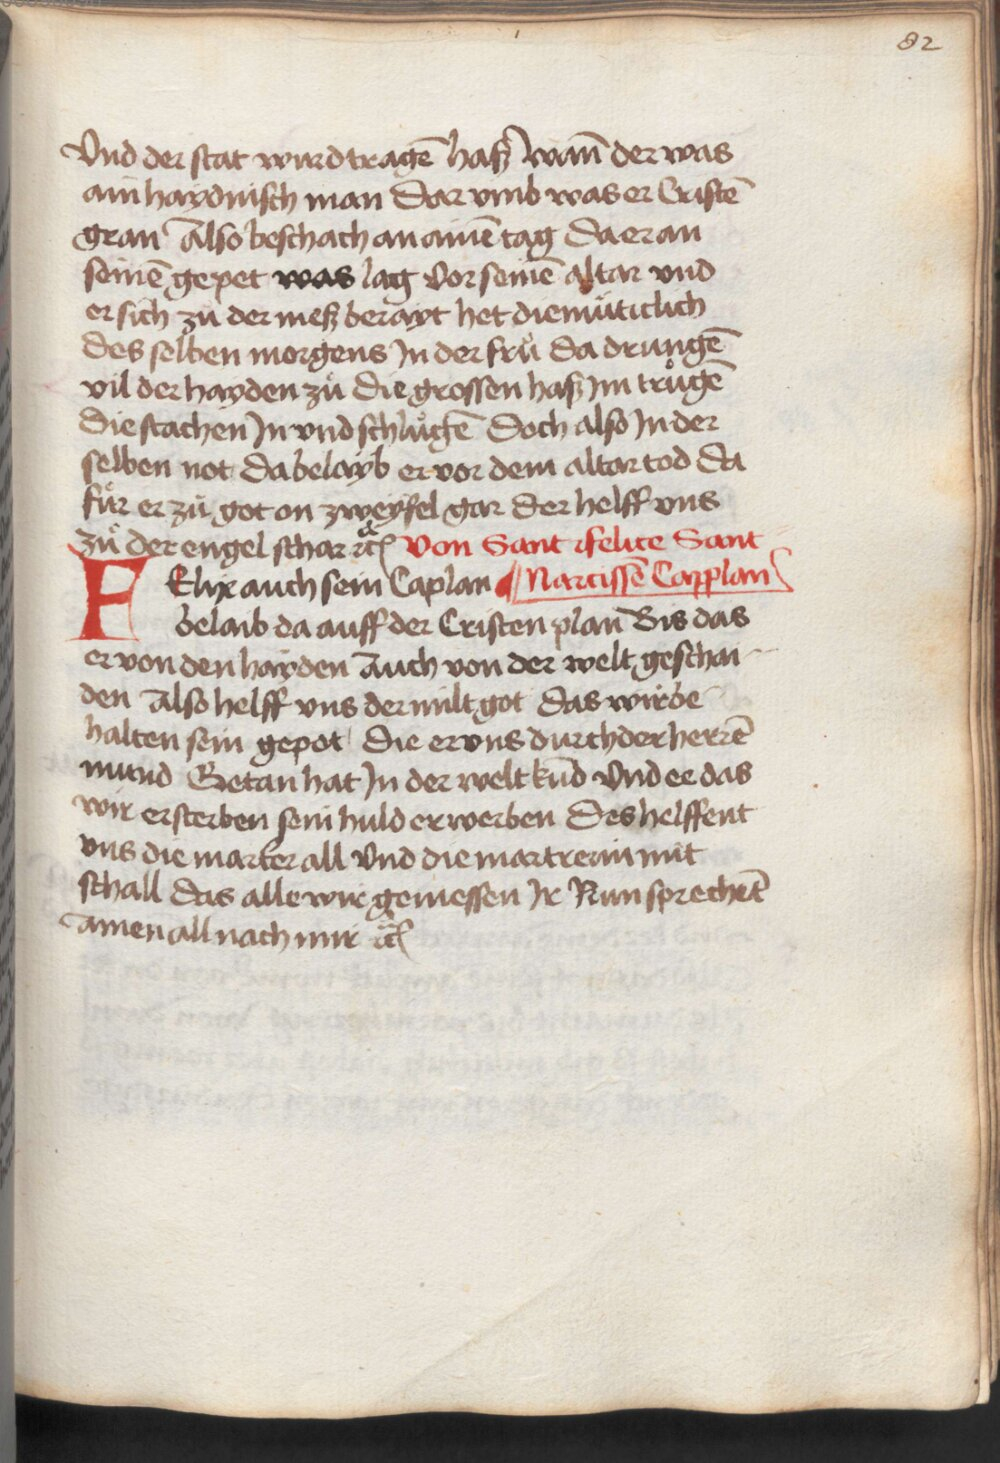 82
Vnd der stat wurd tragē haß wañ der was
ain haydnisch man Dar vmb was er Cristē
gran Also beschach an ainē tag Da er an
seinē gepet was lag Vor seinē altar vnd
er sich zů der meß berayt het diemüticlich
Des selben morgens In der frů Da drungē
vil der hayden zů Die grossen haß Im trůgē
Die stachen In vnd schlůgē Doch also In der
selben not Da belayb er vor dem altar tod Da
fůr er zů got on zweyfel gar Der helff vns
zů der engel schar ꝛc̃ Von Sant felice Sant
FElix auch sein Caplan Narcissē Capplan
belaib da auff der Cristen plan Bis das
er von den hayden Auch von der welt geschai
den Also helff vns der milt got Das wir be
halten sein gepot Die er vns durch der herrē
mund Getan hat In der welt kūd Vnd ee das
wir ersterben sein huld erwerben Des helffent
vns die marter all Vnd die martrerin mit
schall Das alle wir geniessen Ir Nun sprechēt
amen all nach mir ꝛc̃